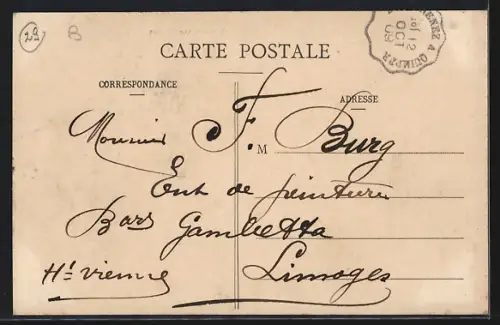 29 B
CARTE POSTALE
CORRESPONDANCE
ADRESSE
RENEZ A QUIMPER
12
OCT
09
Monsieur F. M Burg
Ent de peinture
Bard Gambetta
Limoges
Hte Vienne